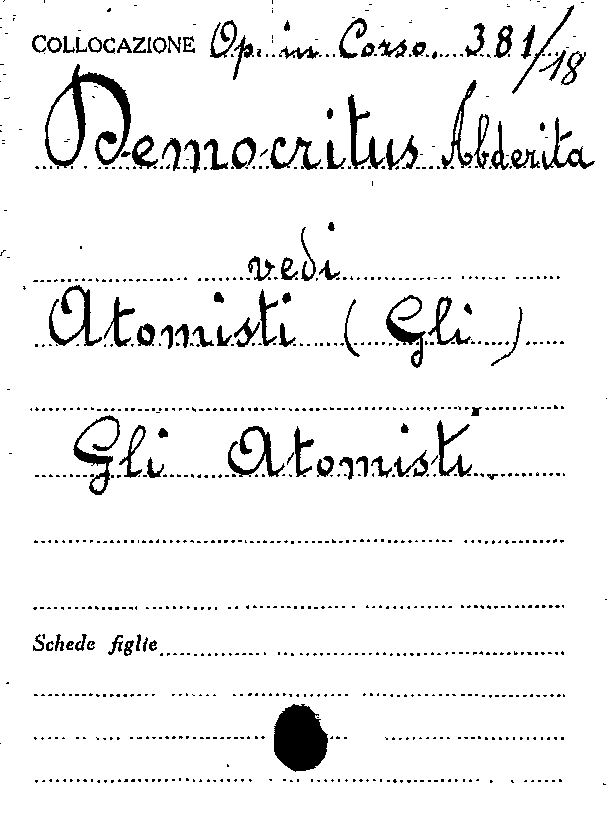 COLLOCAZIONE Op. in Corso. 381/18
Democritus Abderita
vedi
Atomisti (Gli)
Gli Atomisti.
Schede figlie